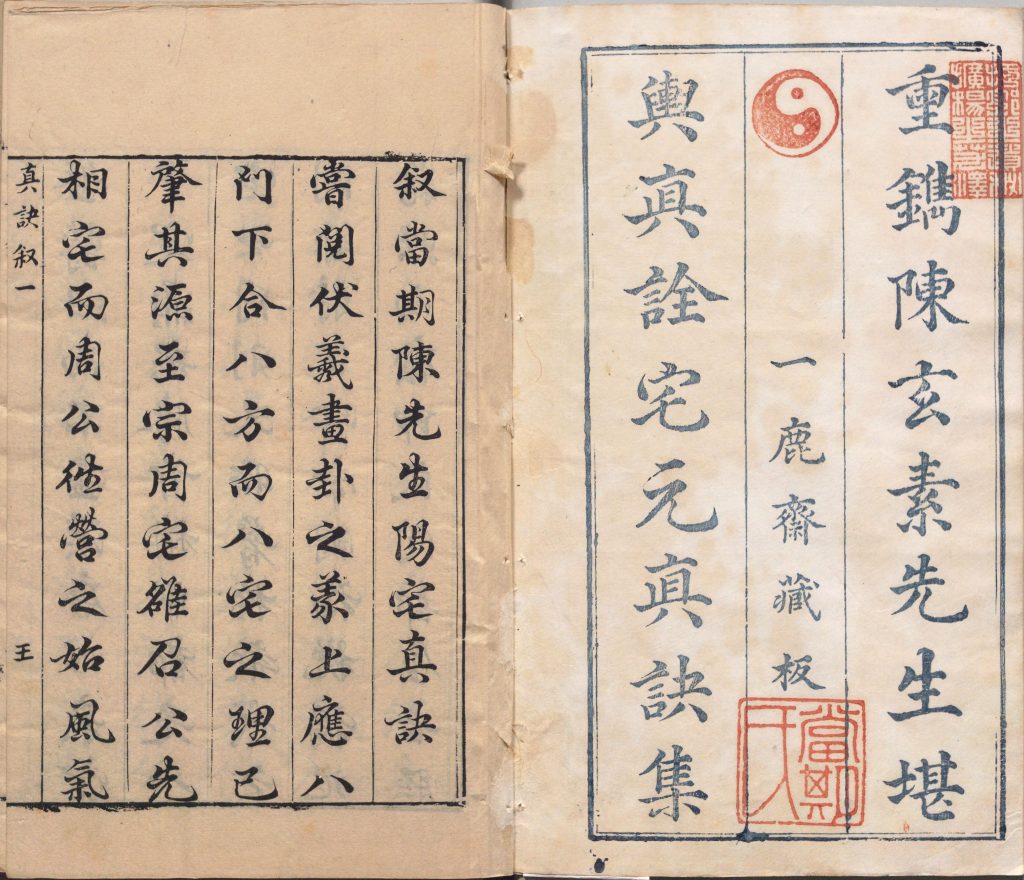 重鐫陳玄素先生堪
一鹿齋藏板
輿真詮宅元真訣集
當期
叙當期陳先生陽宅真訣
嘗閱伏羲畫卦之義上應八
門下合八方而八宅之理已
肇其源至宗周宅雒召公先
相宅而周公徃營之始風氣
真訣叙一
王